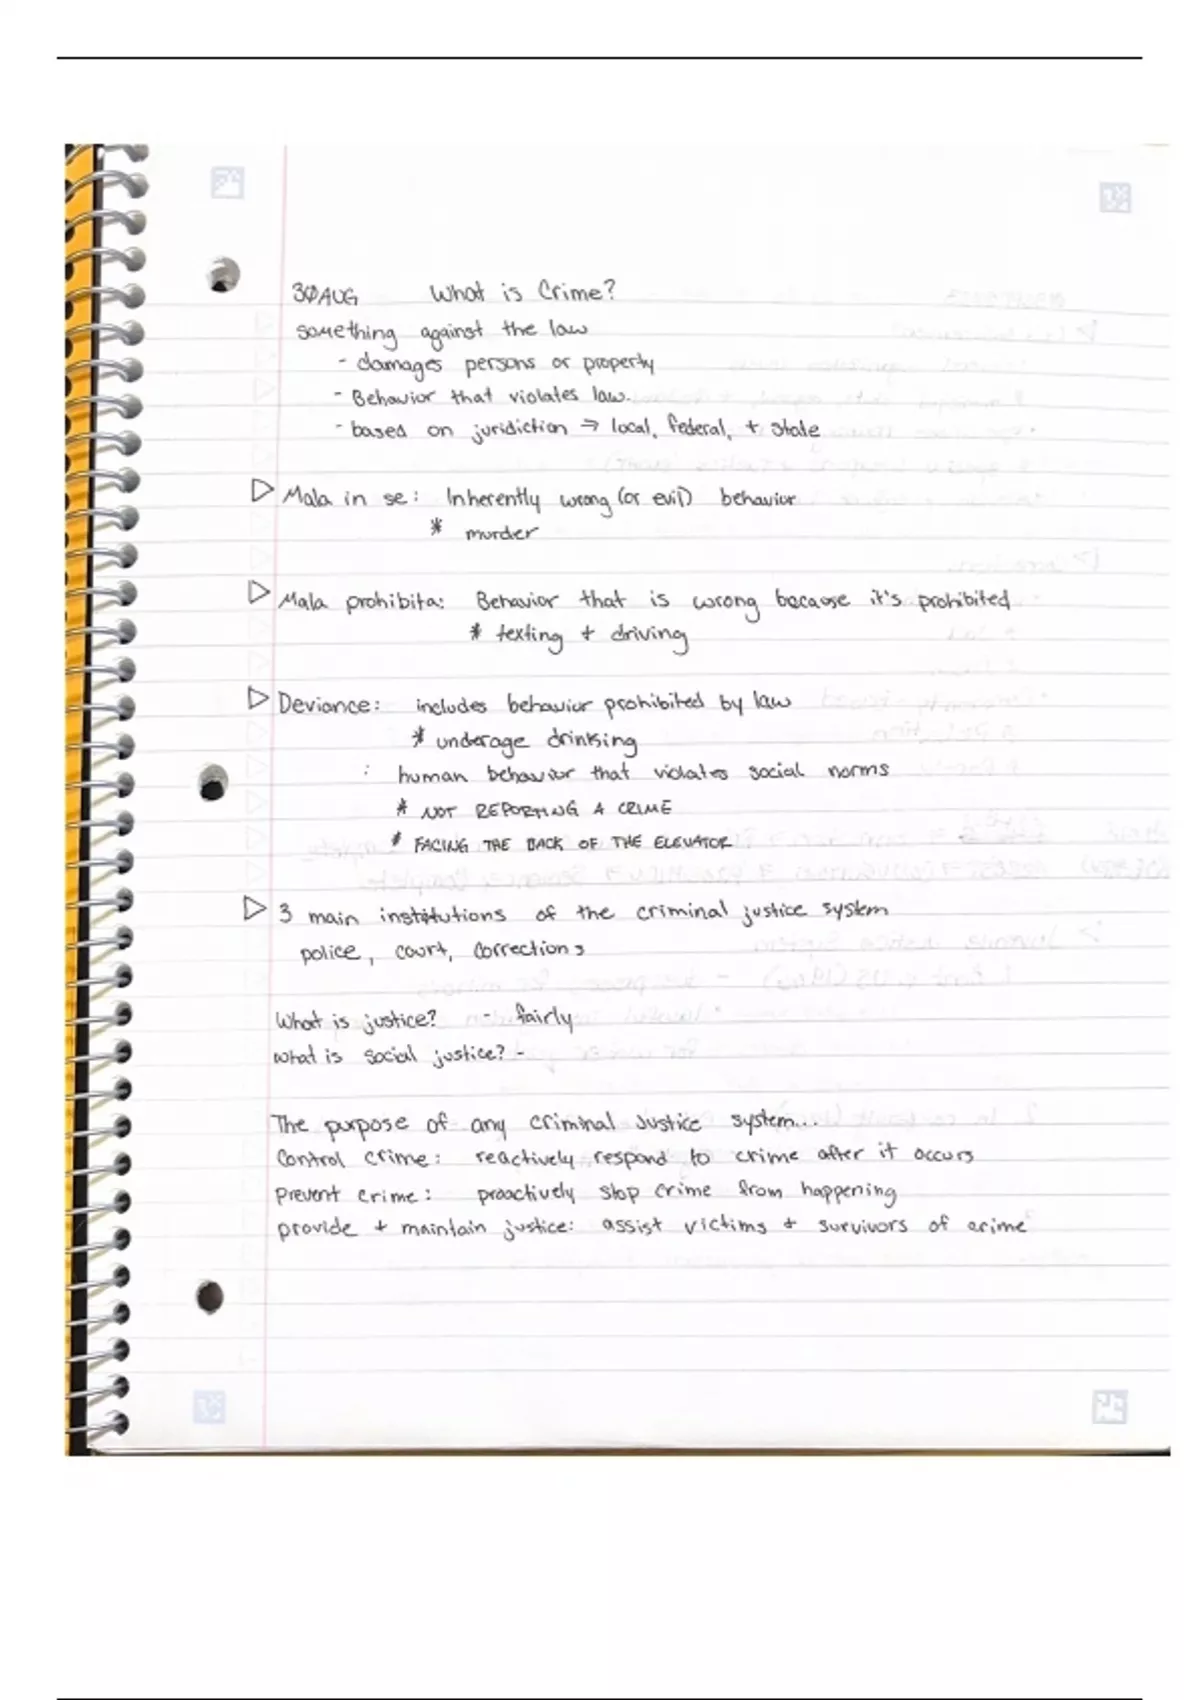 30AUG What is Crime?
something against the law
- damages persons or property
- Behavior that violates law.
- based on juridiction → local, federal, + state
▷ Mala in se: Inherently wrong (or evil) behavior
* murder
▷ Mala prohibita: Behavior that is wrong because it's prohibited
* texting + driving
▷ Deviance: includes behavior prohibited by law
* underage drinking
: human behavior that violates social norms
* NOT REPORTING A CRIME
* FACING THE BACK OF THE ELEVATOR
▷ 3 main institutions of the criminal justice system
police, court, corrections
What is justice? - fairly
what is social justice? -
The purpose of any criminal justice system...
Control crime: reactively respond to crime after it occurs
prevent crime: proactively stop crime from happening
provide + maintain justice: assist victims + survivors of crime